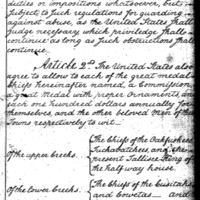 duties or impositions whatsoever, but
subject to such regulations for guarding
against abuse, as the United States shall
judge necessary, which priviledge shall
continue as long as such obstructions shall
continue.
Article 2d. The United States also
agree to allow to each of the great medal
chiefs hereinafter named, a Commission
a great Medal with proper Ornaments, and
each one hundred dollars annually for
themselves, and the other beloved Men of the
Towns respectively to wit —
Of the upper Creeks. The Chiefs of the Oakfuskees
Tuckabatchees, and the
present Tallisee King of the
half way house.
Of the lower Creeks. The Chiefs of the Cusitahs
and Cowetas — and